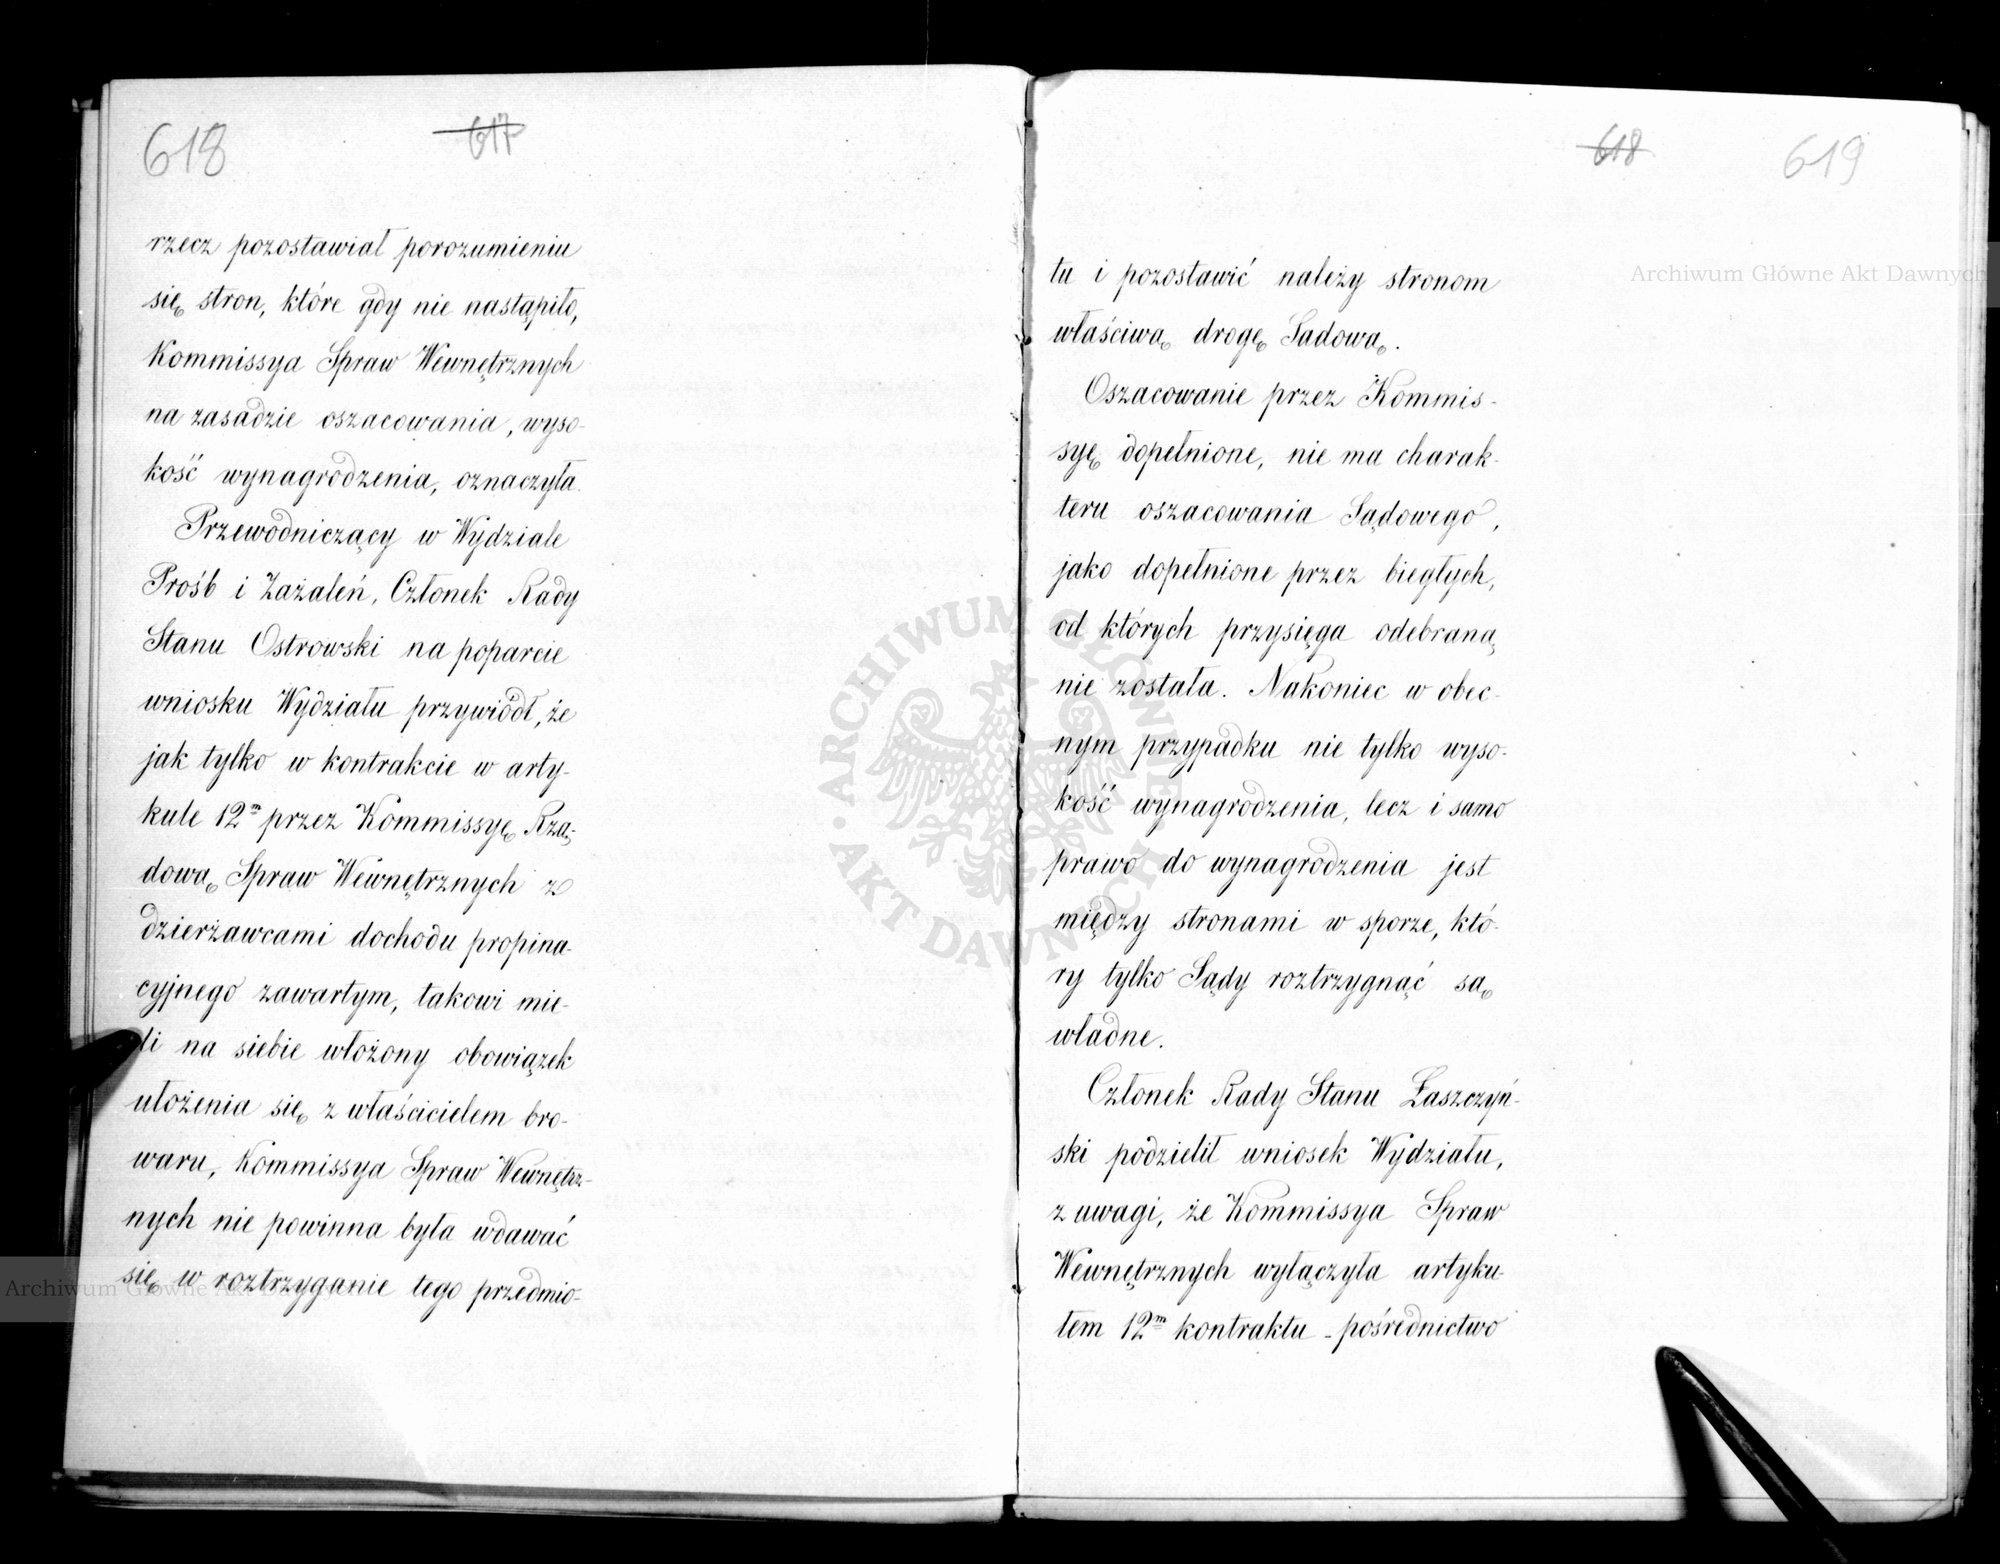 618
617
rzecz pozostawiał porozumieniu
się stron, które gdy nie nastąpiło,
Kommissya Spraw Wewnętrznych
na zasadzie oszacowania, wyso-
kość wynagrodzenia, oznaczyła.
Przewodniczący w Wydziale
Prośb i Zażaleń, Członek Rady
Stanu Ostrowski na poparcie
wniosku Wydziału przywiódł, że
jak tylko w kontrakcie w arty-
kule 12m przez Kommissyę Rzą-
dową Spraw Wewnętrznych z
dzierżawcami dochodu propina-
cyjnego zawartym, takowi mie-
li na siebie włożony obowiązek
ułożenia się z właścicielem bro-
waru, Kommissya Spraw Wewnętrz-
nych nie powinna była wdawać
się w roztrzyganie tego przedmio-
618
619
tu i pozostawić należy stronom
właściwą drogę Sadową.
Oszacowanie przez Kommis-
syę dopełnione, nie ma charak-
teru oszacowania Sądowego,
jako dopełnione przez biegłych,
od których przysięga odebraną
nie została. Nakoniec w obec-
nym przypadku nie tylko wyso-
kość wynagrodzenia, lecz i samo
prawo do wynagrodzenia jest
między stronami w sporze, któ-
ry tylko Sądy roztrzygnąć są
władne.
Członek Rady Stanu Łaszczyń-
ski podzielił wniosek Wydziału,
z uwagi, że Kommissya Spraw
Wewnętrznych wyłączyła artyku-
łem 12m kontraktu - pośrednictwo
Archiwum Główne Akt Dawnych
Archiwum Główne Akt Dawnych
ARCHIWUM GŁÓWNE · AKT DAWNYCH ·